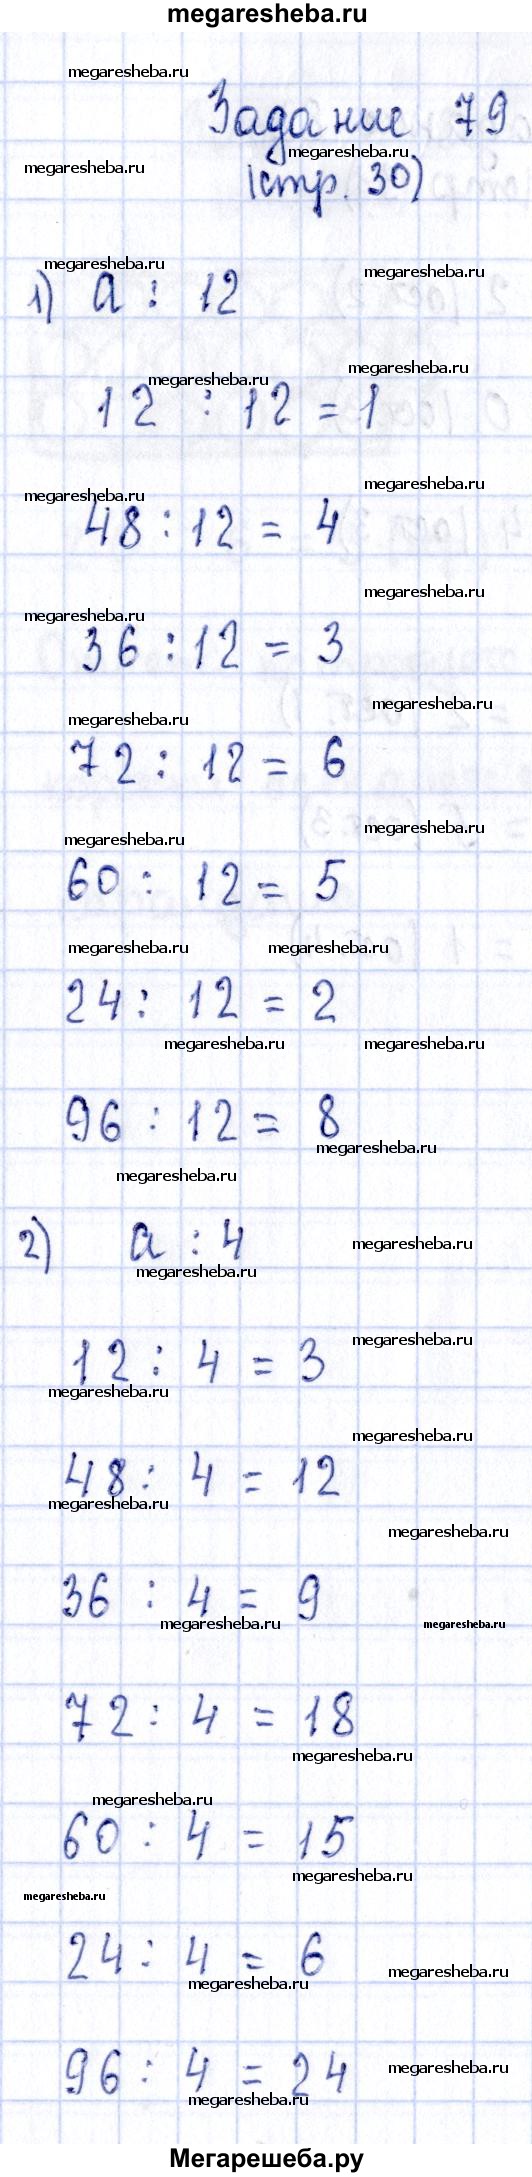 megaresheba.ru
megaresheba.ru
Задание 79
megaresheba.ru
megaresheba.ru
(стр. 30)
megaresheba.ru
megaresheba.ru
1) a : 12
megaresheba.ru
megaresheba.ru
12 : 12 = 1
megaresheba.ru
megaresheba.ru
48 : 12 = 4
megaresheba.ru
megaresheba.ru
36 : 12 = 3
megaresheba.ru
megaresheba.ru
72 : 12 = 6
megaresheba.ru
megaresheba.ru
60 : 12 = 5
megaresheba.ru megaresheba.ru
24 : 12 = 2
megaresheba.ru megaresheba.ru
96 : 12 = 8
megaresheba.ru
megaresheba.ru
2) a : 4
megaresheba.ru
megaresheba.ru
megaresheba.ru
12 : 4 = 3
megaresheba.ru
megaresheba.ru
48 : 4 = 12
megaresheba.ru
megaresheba.ru
36 : 4 = 9
megaresheba.ru
megaresheba.ru
72 : 4 = 18
megaresheba.ru
megaresheba.ru
60 : 4 = 15
megaresheba.ru
megaresheba.ru
24 : 4 = 6
megaresheba.ru
megaresheba.ru
96 : 4 = 24
megaresheba.ru
megaresheba.ru
Мегарешеба.ру